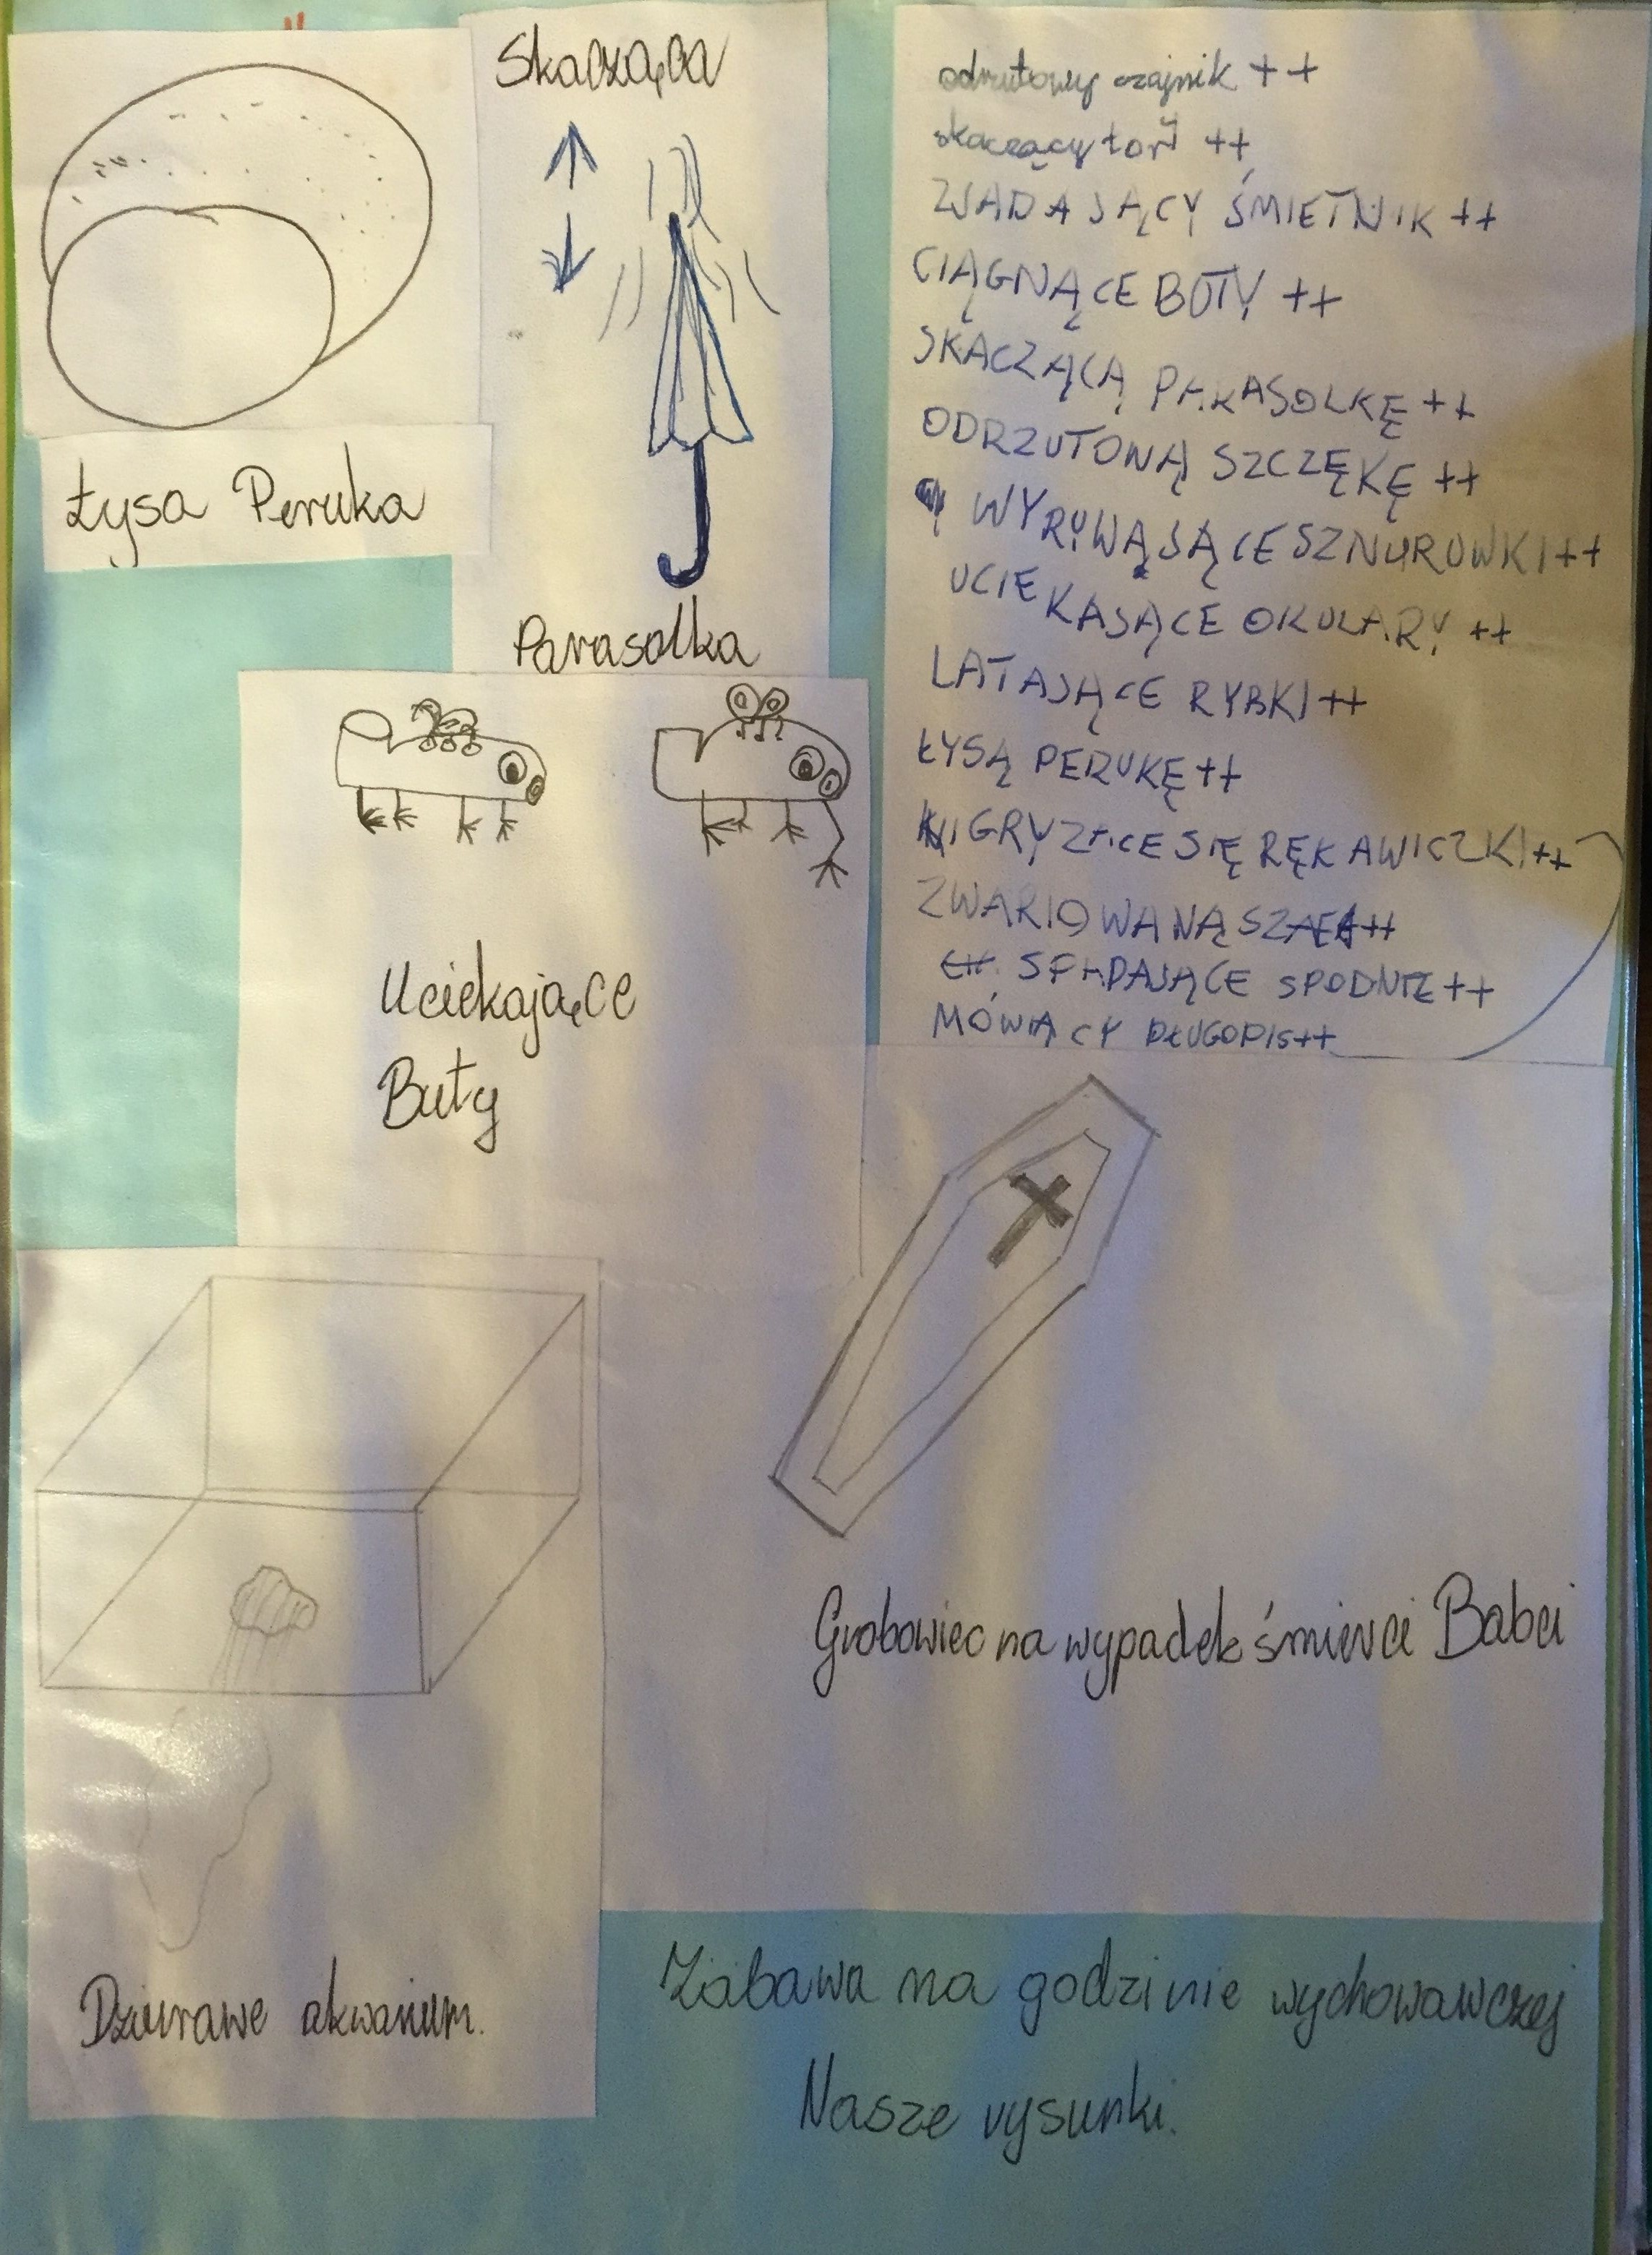 Skacząca
Łysa Peruka
Parasolka
Uciekające
Buty
odrzutowy czajnik ++
skaczący tort ++
ZJADAJĄCY ŚMIETNIK ++
CIĄGNĄCE BUTY ++
SKACZĄCĄ PARASOLKĘ ++
ODRZUTONĄ SZCZĘKĘ ++
WYRYWĄJĄCE SZNUROWKI ++
UCIEKAJĄCE OKULARY ++
LATAJĄCE RYBKI ++
ŁYSĄ PERUKĘ ++
GRYZĄCE SIĘ RĘKAWICZKI ++
ZWARIOWANĄ ++
SPADAJĄCE SPODNIE ++
MÓWIĄCY DŁUGOPIS ++
Grobowiec na wypadek śmierci Babci
Dziurawe akwarium.
Zabawa na godzinie wychowawczej
Nasze rysunki.